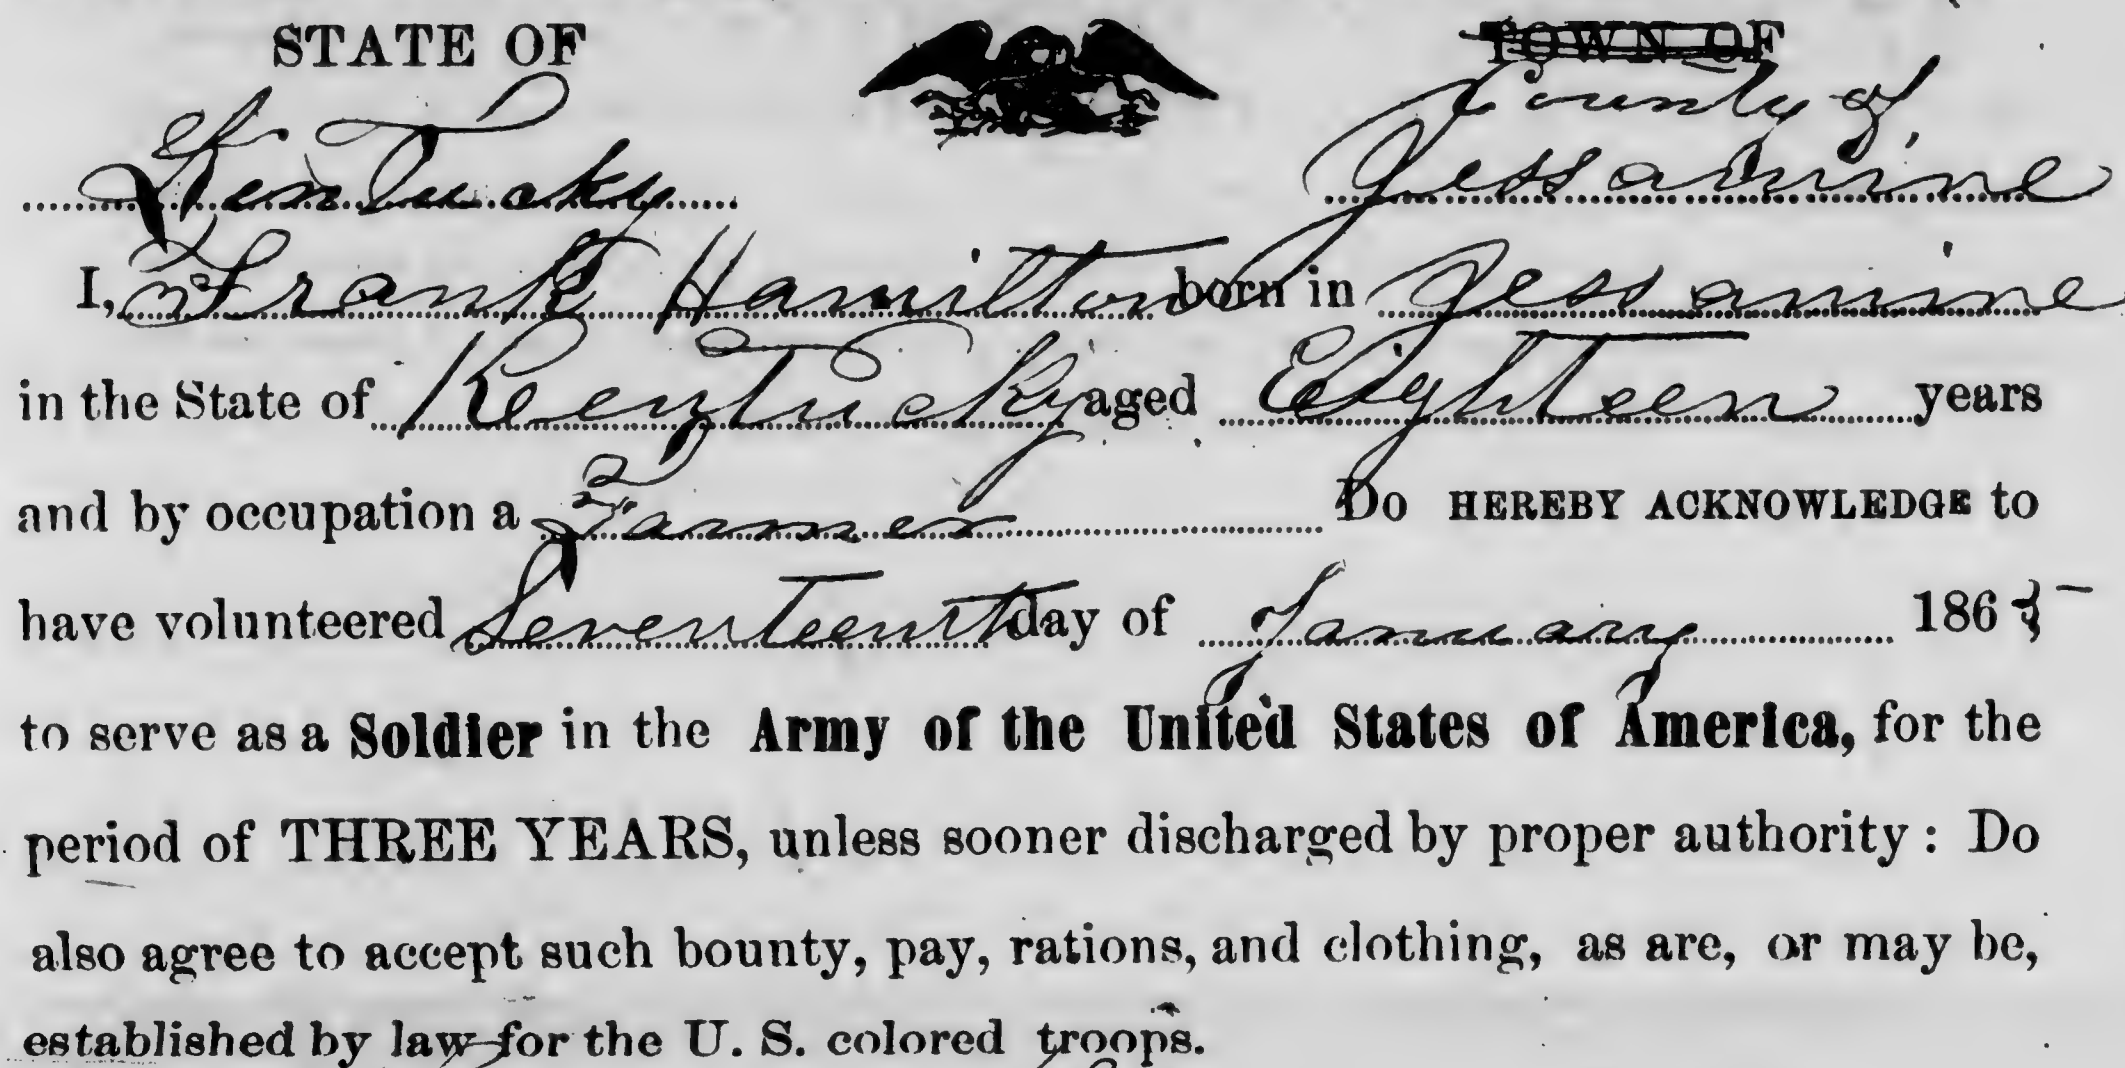 STATE OF
TOWN OF
County of
Kentucky
Jessamine
I, Frank Hamilton born in Jessamine
in the State of Kentucky aged Eighteen years
and by occupation a Farmer Do HEREBY ACKNOWLEDGE to
have volunteered Seventeenth day of January 1865
to serve as a Soldier in the Army of the United States of America, for the
period of THREE YEARS, unless sooner discharged by proper authority: Do
also agree to accept such bounty, pay, rations, and clothing, as are, or may be,
established by law for the U. S. colored troops.